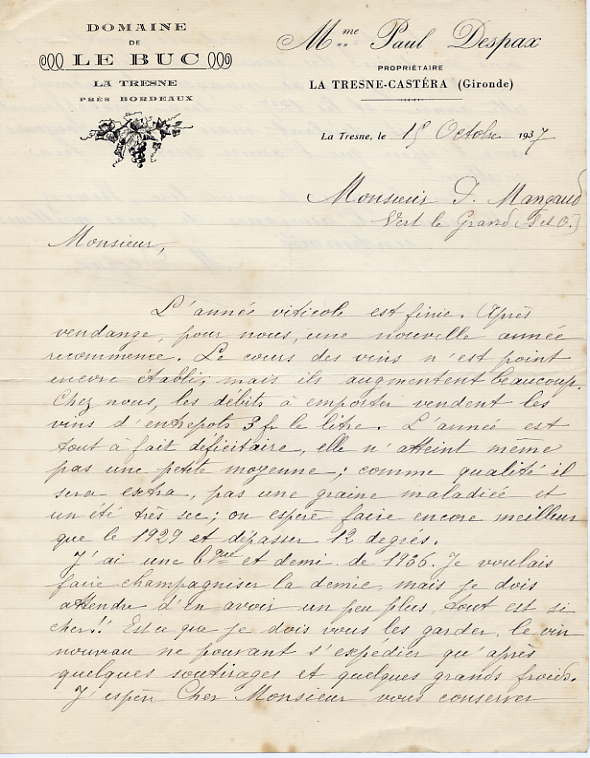 DOMAINE
DE
LE BUC
LA TRESNE
PRÈS BORDEAUX
Mme Paul Despax
PROPRIÉTAIRE
LA TRESNE-CASTÉRA (Gironde)
La Tresne, le 18 Octobre 1937
Monsieur J. Mangaud
Vert le Grand (S et O.)
Monsieur,
L'année viticole est finie. Après
vendange, pour nous, une nouvelle année
recommence. Le cours des vins n'est point
encore établi, mais ils augmentent beaucoup.
Chez nous, les débits à emporter vendent les
vins d'entrepots 3 fr le litre. L'année est
tout à fait déficitaire, elle n'atteint même
pas une petite moyenne; comme qualité il
sera extra, pas une graine maladiée et
un été très sec; on espère faire encore meilleur
que le 1929 et dépasser 12 degrés.
J'ai une bque et demi de 1936. Je voulais
faire champagniser la demie, mais je dois
attendre d'en avoir un peu plus, tout est si
cher!! Est ce que je dois vous les garder, le vin
nouveau ne pouvant s'expédier qu'après
quelques soutirages et quelques grands froids.
J'espère Cher Monsieur vous conserver